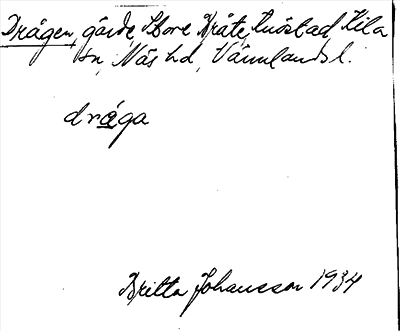 Drågen, gärde, Store Bråte, Knöstad, Kila
sn, Näs hd, Värmlands l.
dråga
Britta Johansson 1934